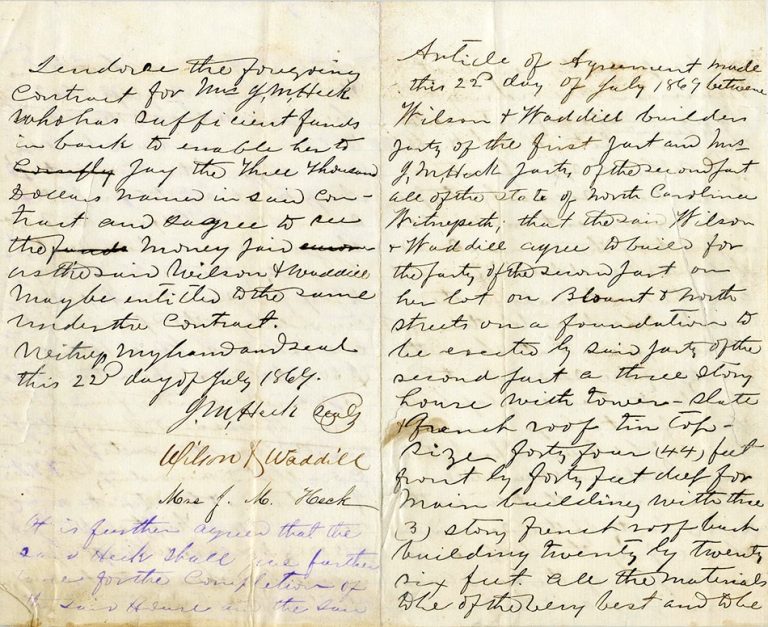 I endorse the foregoing
Contract for Mrs J, M, Heck
who has sufficient funds
in bank to enable her to
Comply pay the Three Thousand
Dollars named in said Con-
tract and I agree to see
the funds money paid
as the said Wilson & Waddill
may be entitled to the same
under the Contract.
Witness my hand and seal
this 22d day of July 1869.
J. M, Heck (Seal)
Wilson & Waddill
Mrs J. M. Heck
It is further agreed that the
said Heck shall give further
time for the Completion of
said House in the said
Article of Agreement made
this 22d day of July 1869 between
Wilson & Waddill builders
party of the first part and Mrs
J, M Heck party of the second part
all of the State of North Carolina
Witnesseth; that the said Wilson
& Waddill agree to build for
the party of the second part on
her lot on Blount & North
streets on a foundation to
be erected by said party of the
second part a three story
house with tower - slate
& French roof tin top -
size forty four (44) feet
front by forty feet deep for
main building with three
(3) story french roof back
building twenty by twenty
six feet. all the materials
to be of the very best and to be